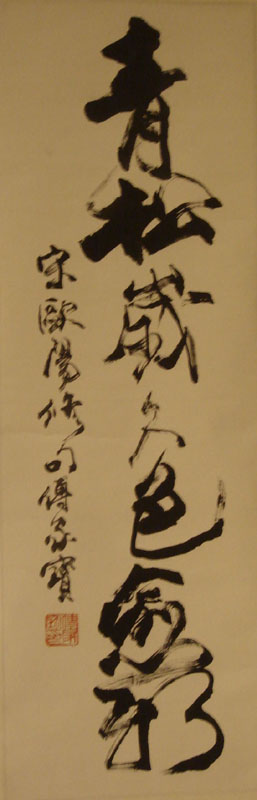 青松歲久色愈新
宋歐陽修句傅家寶